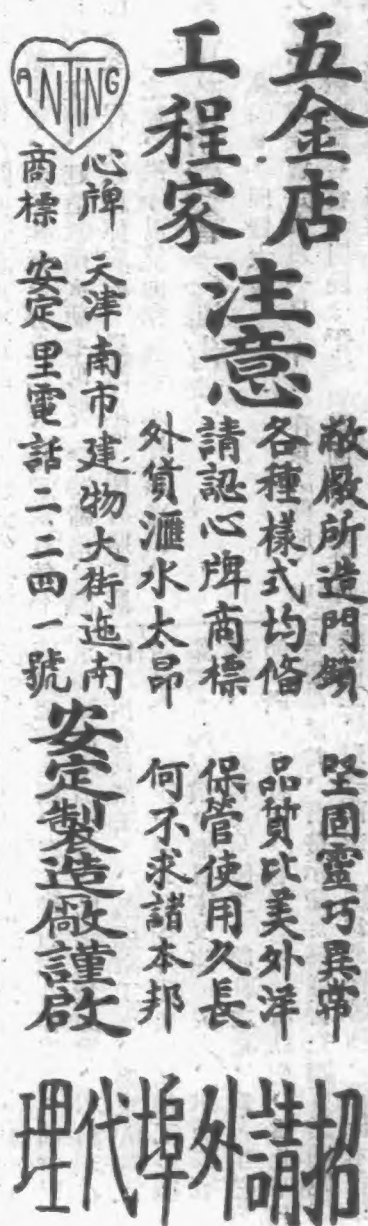 五金店
工程家
注意
敝廠所造門鎖 堅固靈巧異常
各種樣式均俻 品質比美外洋
請認心牌商標 保管使用久長
外貨滙水太昂 何不求諸本邦
ANTING
心牌
商標
天津南市建物大街迤南
安定里電話二二四一號
安定製造厰謹啟
招請外埠代理